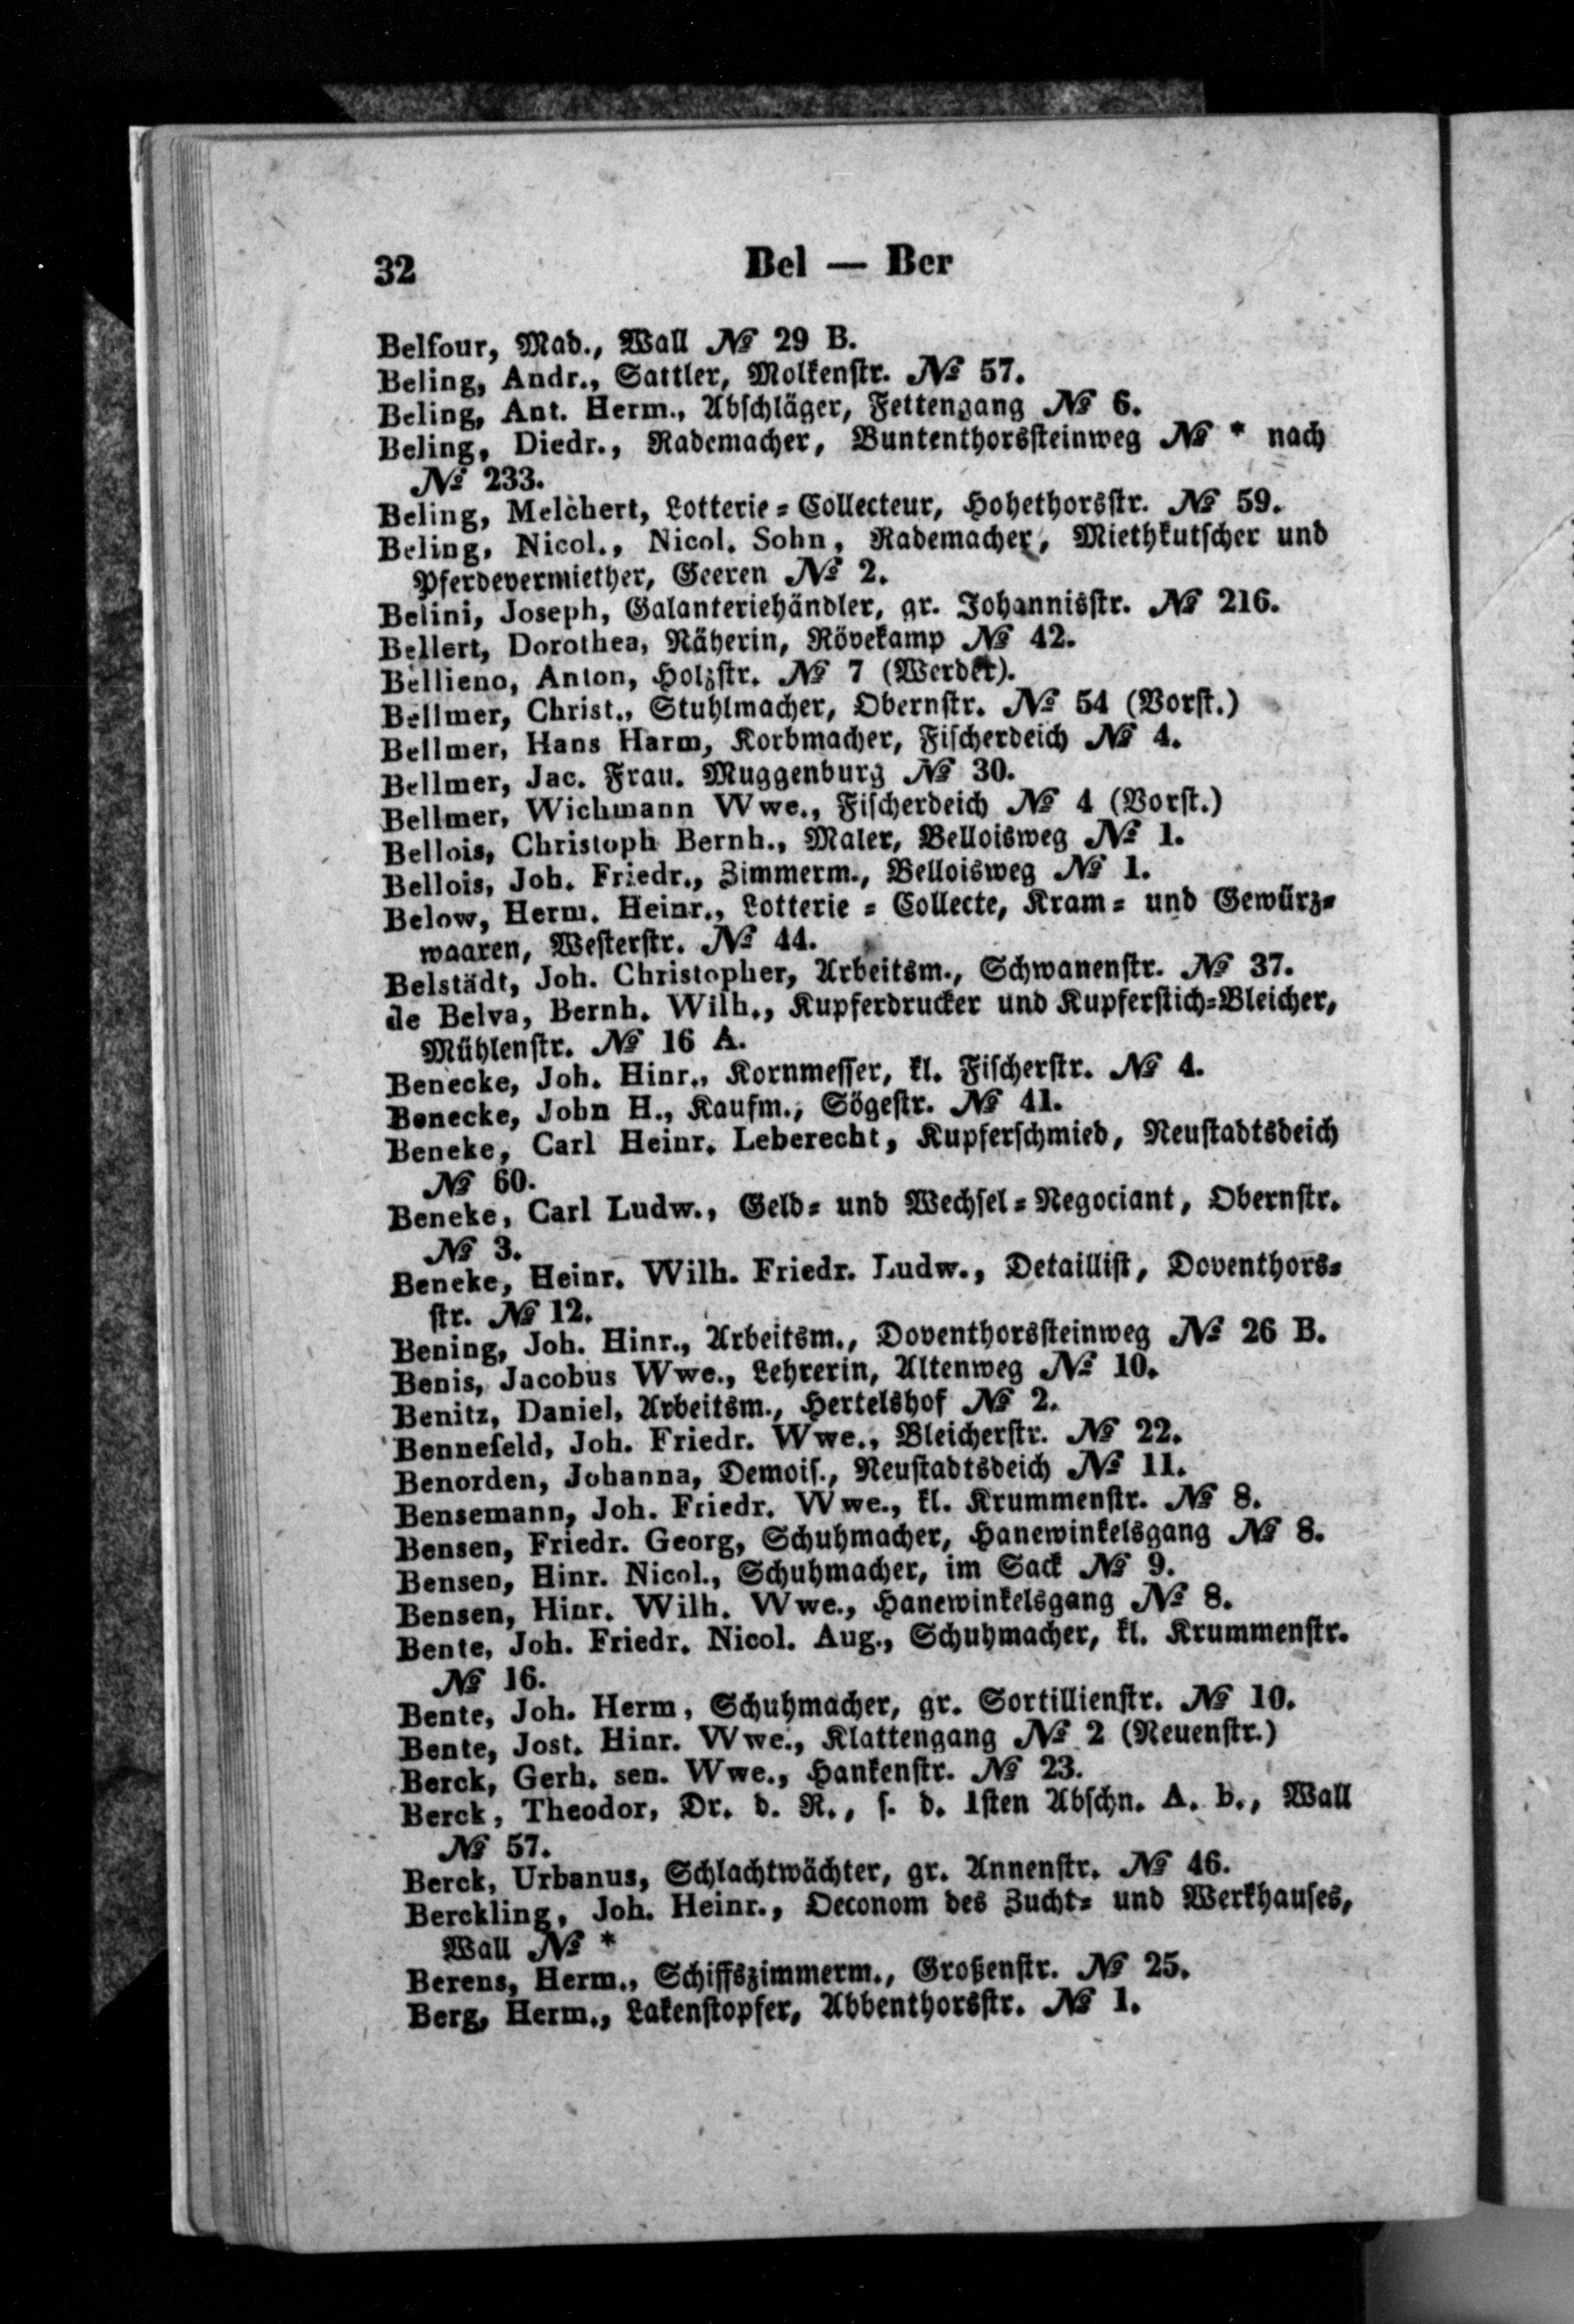 32
Bel — Ber
Belfour, Mad., Wall № 29 B.
Beling, Andr., Sattler, Molkenstr. № 57.
Beling, Ant. Herm., Abschläger, Fettengang № 6.
Beling, Diedr., Rademacher, Buntenthorssteinweg № * nach
№ 233.
Beling, Melchert, Lotterie=Collecteur, Hohethorsstr. № 59.
Beling, Nicol., Nicol. Sohn, Rademacher, Miethkutscher und
Pferdevermiether, Geeren № 2.
Belini, Joseph, Galanteriehändler, gr. Johannisstr. № 216.
Bellert, Dorothea, Näherin, Rövekamp № 42.
Bellieno, Anton, Holzstr. № 7 (Werder).
Bellmer, Christ., Stuhlmacher, Obernstr. № 54 (Vorst.)
Bellmer, Hans Harm, Korbmacher, Fischerdeich № 4.
Bellmer, Jac. Frau. Muggenburg № 30.
Bellmer, Wichmann Wwe., Fischerdeich № 4 (Vorst.)
Bellois, Christoph Bernh., Maler, Belloisweg № 1.
Bellois, Joh. Friedr., Zimmerm., Belloisweg № 1.
Below, Herm. Heinr., Lotterie=Collecte, Kram= und Gewürz=
waaren, Westerstr. № 44.
Belstädt, Joh. Christopher, Arbeitsm., Schwanenstr. № 37.
de Belva, Bernh. Wilh., Kupferdrucker und Kupferstich=Bleicher,
Mühlenstr. № 16 A.
Benecke, Joh. Hinr., Kornmesser, kl. Fischerstr. № 4.
Benecke, John H., Kaufm., Sögestr. № 41.
Beneke, Carl Heinr. Leberecht, Kupferschmied, Neustadtsdeich
№ 60.
Beneke, Carl Ludw., Geld= und Wechsel=Negociant, Obernstr.
№ 3.
Beneke, Heinr. Wilh. Friedr. Ludw., Detaillist, Doventhors=
str. № 12.
Bening, Joh. Hinr., Arbeitsm., Doventhorssteinweg № 26 B.
Benis, Jacobus Wwe., Lehrerin, Altenweg № 10.
Benitz, Daniel, Arbeitsm., Hertelshof № 2.
Bennefeld, Joh. Friedr. Wwe., Bleicherstr. № 22.
Benorden, Johanna, Demois., Neustadtsdeich № 11.
Bensemann, Joh. Friedr. Wwe., kl. Krummenstr. № 8.
Bensen, Friedr. Georg, Schuhmacher, Hanewinkelsgang № 8.
Bensen, Hinr. Nicol., Schuhmacher, im Sack № 9.
Bensen, Hinr. Wilh. Wwe., Hanewinkelsgang № 8.
Bente, Joh. Friedr. Nicol. Aug., Schuhmacher, kl. Krummenstr.
№ 16.
Bente, Joh. Herm, Schuhmacher, gr. Sortillienstr. № 10.
Bente, Jost. Hinr. Wwe., Klattengang № 2 (Neuenstr.)
Berck, Gerh. sen. Wwe., Hankenstr. № 23.
Berck, Theodor, Dr. d. R., s. d. 1sten Abschn. A. b., Wall
№ 57.
Berck, Urbanus, Schlachtwächter, gr. Annenstr. № 46.
Berckling, Joh. Heinr., Oeconom des Zucht= und Werkhauses,
Wall № *
Berens, Herm., Schiffszimmerm., Großenstr. № 25.
Berg, Herm., Lakenstopfer, Abbenthorsstr. № 1.